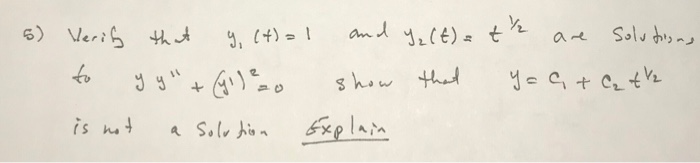 5) Verify that y₁(t) = 1 and y₂(t) = t^(1/2) are solutions
to y y'' + (y')² = 0 show that y = C₁ + C₂ t^(1/2)
is not a solution Explain